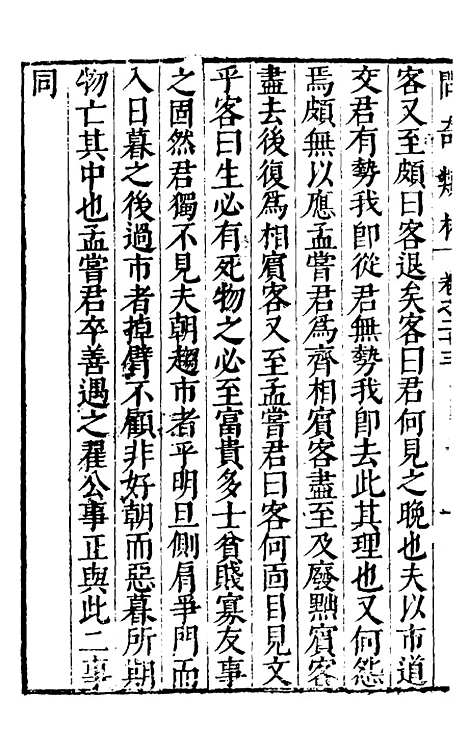 問奇類林 卷之二十三
客又至頗曰客退矣客曰君何見之晚也夫以市道
交君有勢我卽從君無勢我卽去此其理也又何怨
焉頗無以應孟嘗君爲齊相賓客盡至及廢黜賓客
盡去後復爲相賓客又至孟嘗君曰客何面目見文
乎客曰生必有死物之必至富貴多士貧賤寡友事
之固然君獨不見夫朝趨市者乎明旦側肩爭門而
入日暮之後過市者掉臂不顧非好朝而惡暮所期
物亡其中也孟嘗君卒善遇之翟公事正與此二事
同